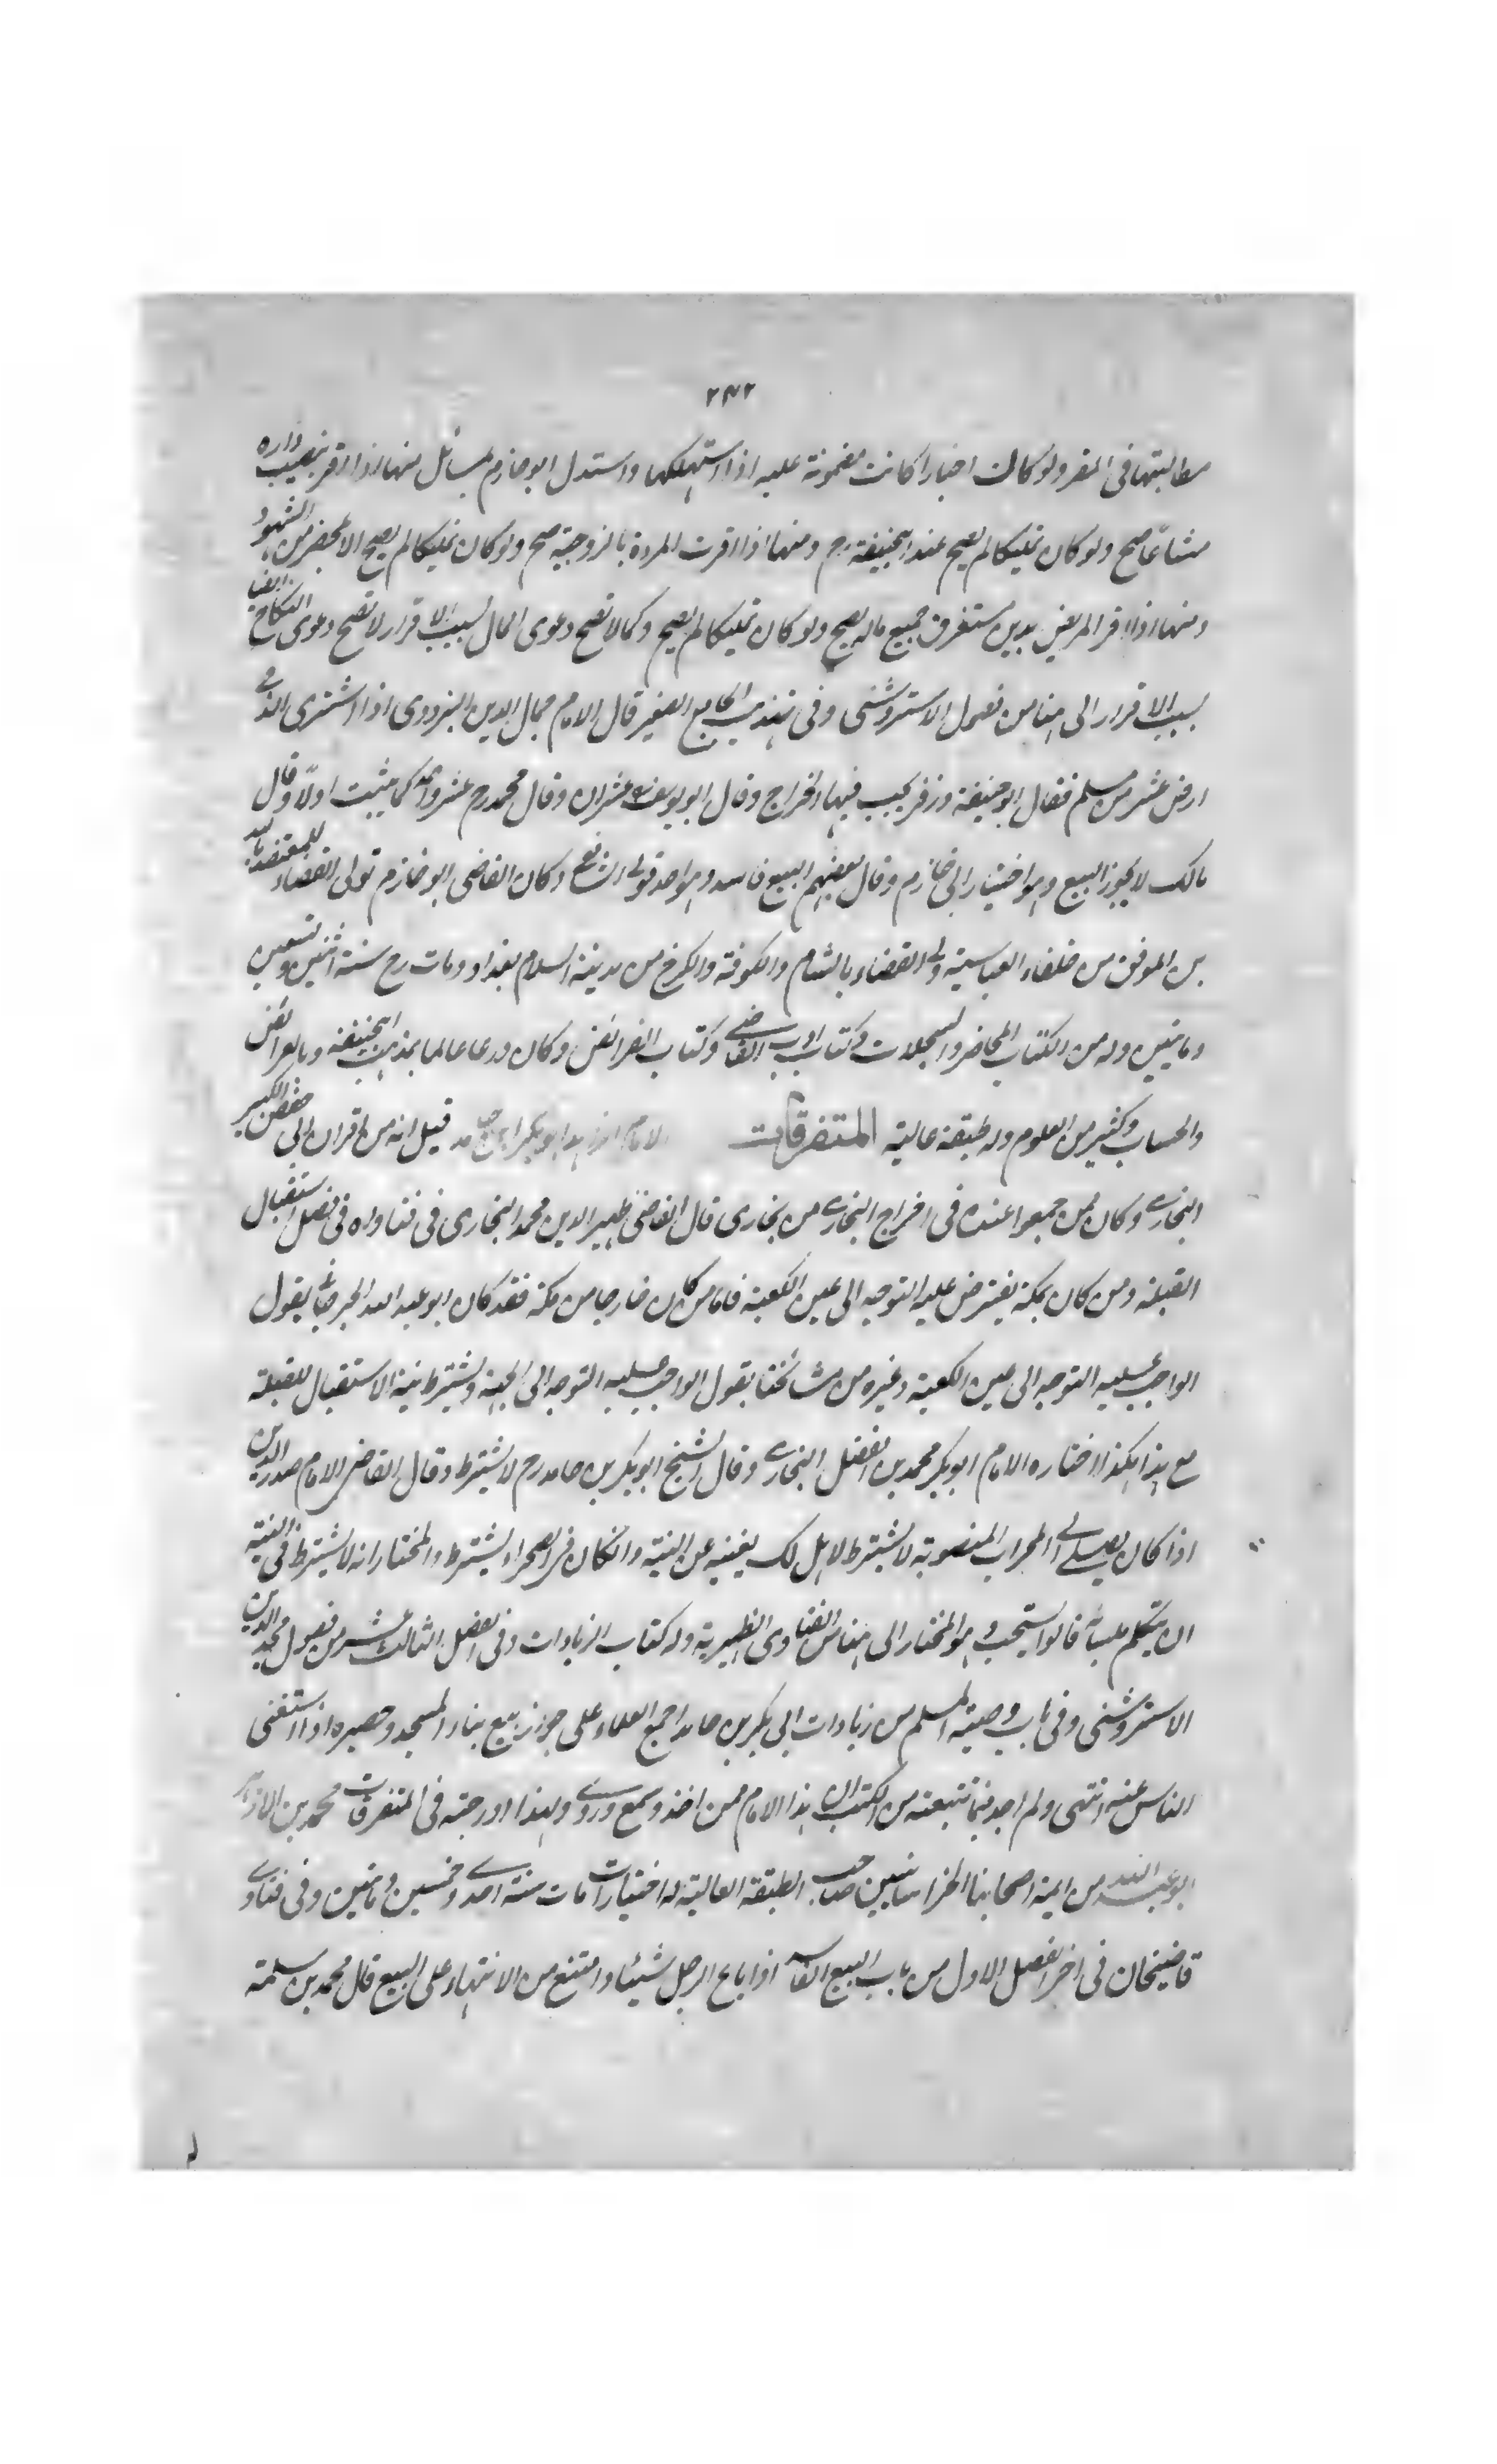 ٢٤٢
مطالبتها فى المقر ولو كان اخبارا كانت مضمونة عليه اذا استهلكها واستدل ابو خازم بمسائل منها اذا اقر بنصيب داره
مشاعا صح ولو كان تمليكا لم يصح عند ابيحنيفة رح ومنها اذا اقرت المرءة بالزوجية صح ولو كان تمليكا لم يصح الا بمحضر من الشهود
ومنها اذا اقر المريض بدين مستغرق جميع ماله يصح ولو كان تمليكا لم يصح وكما لا تصح دعوى المال بسبب الاقرار لا تصح دعوى النكاح ايضا
بسبب الاقرار الى هنا من فصول الاستروشنى وفى تهذيب الجامع الصغير قال الامام جمال الدين البزدوى اذا اشترى الذمى
ارض عشر من مسلم فقال ابو حنيفة وزفر يجب فيها الخراج وقال ابو يوسف عشران وقال محمد رح عشر واحد كما يثبت اولا وقال
مالك لا يجوز البيع وهو اختيار ابى خازم وقال بعضهم البيع فاسد وهو احد قولى الشافعى وكان القاضى ابو خازم تولى القضاء للمعتضد بالله
بن الموفق من خلفاء العباسية ولى القضاء بالشام والكوفة والكرخ من مدينة السلام بغداد ومات رح سنة اثنين وتسعين
ومائتين وله من الكتاب المحاضر والسجلات وكتاب ادب القاضى وكتاب الفرائض وكان ورعا عالما بمذهب ابيحنيفة وبالفرائض
والحساب وكثير من العلوم وله طبقة عالية المتفرقات الامام الزاهد ابو بكر بن حامد قيل انه من اقران ابى حفص الكبير
البخارى وكان ممن جمعوا عنده فى اخراج البخارى من بخارى قال القاضى ظهير الدين محمد البخارى فى فتاواه فى فصل استقبال
القبلة ومن كان بمكة يفترض عليه التوجه الى عين الكعبة فاما من كان خارجا من مكة فقد كان ابو عبد الله الجرجانى يقول
الواجب عليه التوجه الى عين الكعبة وغيره من مشائخنا يقول الواجب عليه التوجه الى الجهة ويشترط نية الاستقبال للقبلة
مع هذا هكذا اختاره الامام ابو بكر محمد بن الفضل البخارى وقال الشيخ ابو بكر بن حامد رح لا يشترط وقال القاضى الامام صدر الدين
اذا كان يصلى الى المحراب المنصوبة لا يشترط لان ذلك يغنيه عن النية وان كان فى الصحراء يشترط والمختار انه لا يشترط فى النية
ان يتكلم بلسانه قالوا يستحب وهو المختار الى هنا من الفتاوى الظهيرية وله كتاب الزيادات وفى الفصل الثالث عشر من فصول مجد الدين
الاستروشنى وفى باب وصية المسلم من زيادات ابى بكر بن حامد اجمع العلماء على جواز بيع بناء المسجد وحصيره اذا استغنى
الناس عنه انتهى ولم اجد فيما تتبعته من الكتب ان هذا الامام ممن اخذ وسمع وروى ولهذا اوردته فى المتفرقات محمد بن الازهر
ابو عبد الله من ائمة اصحابنا الخراسانيين صاحب الطبقة العالية له اختيارات مات سنة احدى وخمسين ومائتين وفى فتاوى
قاضيخان فى اخر الفصل الاول من باب البيع الفاسد اذا باع الرجل شيئا وامتنع من الاشهاد على البيع قال محمد بن سلمة